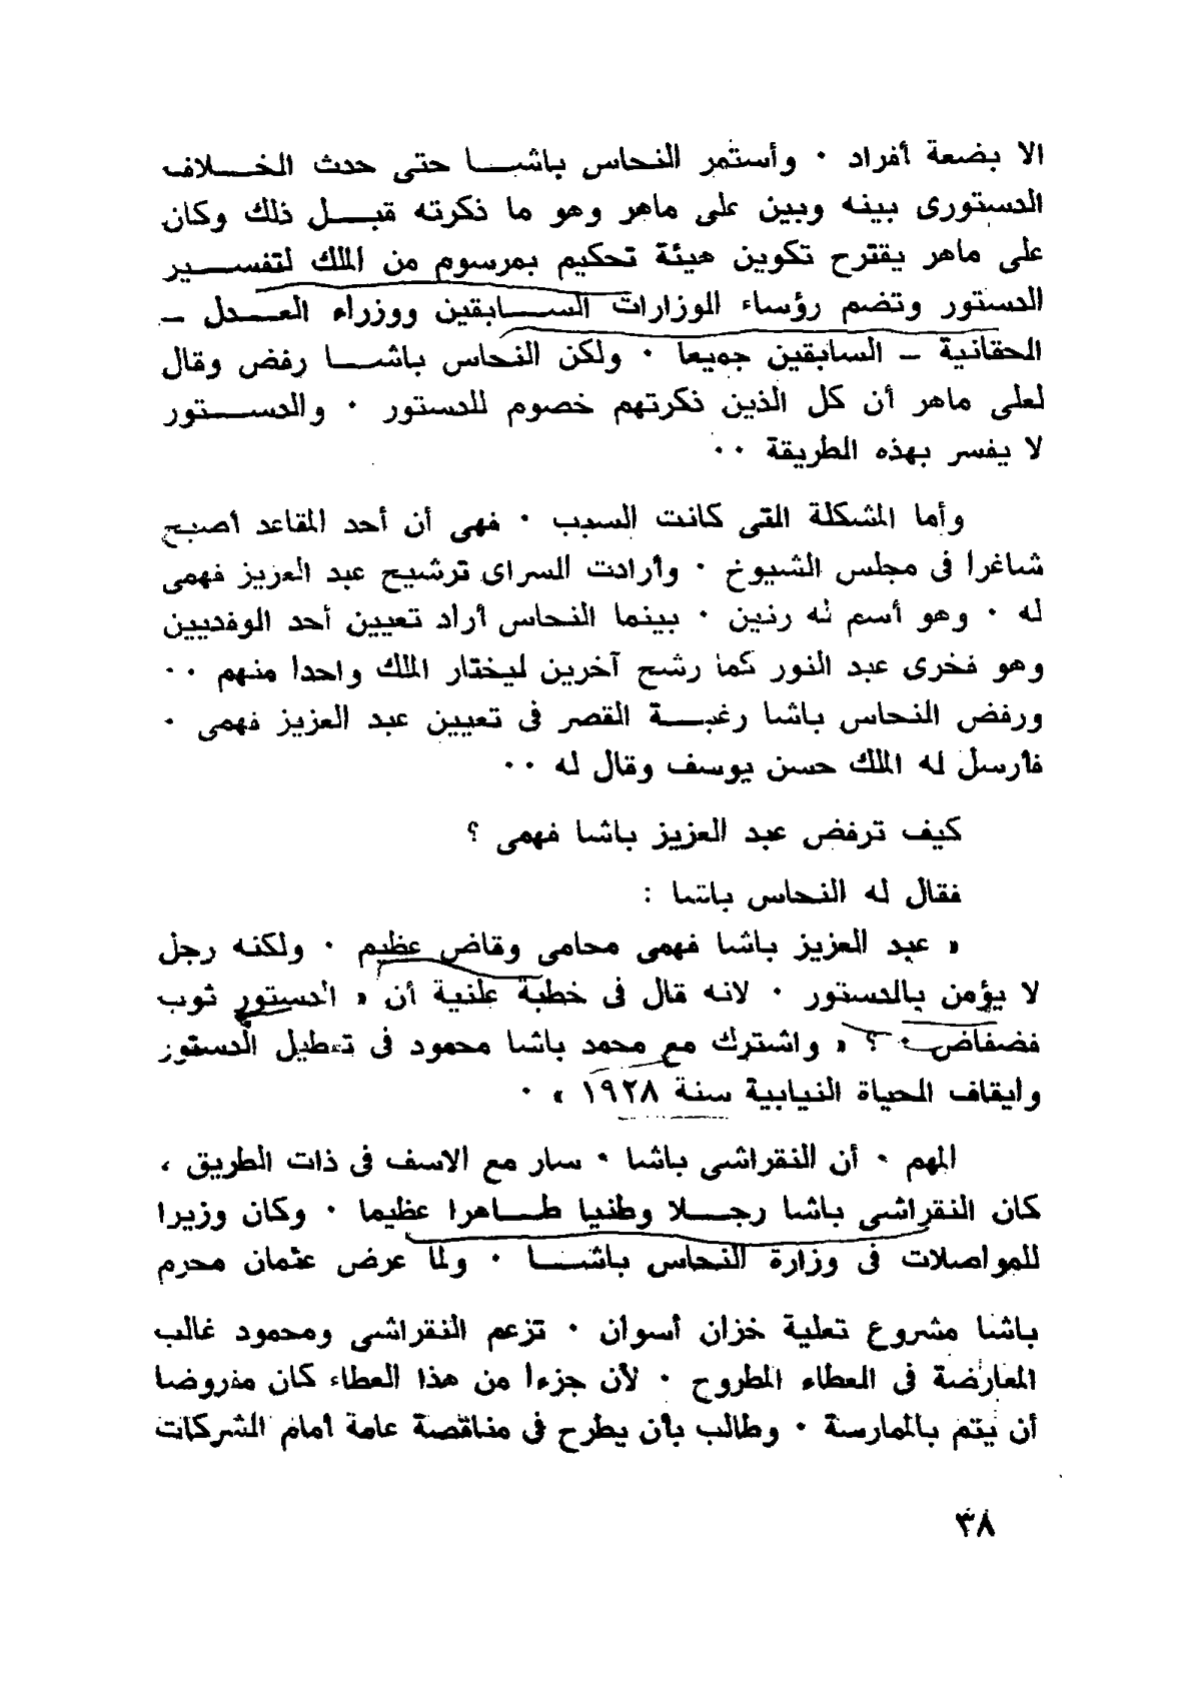 الا بضعة أفراد ٠ وأستمر النحاس باشـــا حتى حدث الخـــلاف
الدستورى بينه وبين على ماهر وهو ما ذكرته قبـــل ذلك وكان
على ماهر يقترح تكوين هيئة تحكيم بمرسوم من الملك لتفســـير
الدستور وتضم رؤساء الوزارات الســـابقين ووزراء العـــدل ــ
الحقانية ــ السابقين جميعا ٠ ولكن النحاس باشـــا رفض وقال
لعلى ماهر أن كل الذين ذكرتهم خصوم للدستور ٠ والدســـتور
لا يفسر بهذه الطريقة ٠٠
وأما المشكلة التى كانت السبب ٠ فهى أن أحد المقاعد أصبح
شاغرا فى مجلس الشيوخ ٠ وأرادت السراى ترشيح عبد العزيز فهمى
له ٠ وهو أسم له رنين ٠ بينما النحاس أراد تعيين أحد الوفديين
وهو فخرى عبد النور كما رشح آخرين ليختار الملك واحدا منهم ٠٠
ورفض النحاس باشا رغبـــة القصر فى تعيين عبد العزيز فهمى ٠
فأرسل له الملك حسن يوسف وقال له ٠٠
كيف ترفض عبد العزيز باشا فهمى ؟
فقال له النحاس باشا :
« عبد العزيز باشا فهمى محامى وقاض عظيم ٠ ولكنه رجل
لا يؤمن بالدستور ٠ لانه قال فى خطبة علنية أن « الدستور ثوب
فضفاض ٠ ؟ » واشترك مع محمد باشا محمود فى تعطيل الدستور
وايقاف الحياة النيابية سنة ١٩٢٨ » ٠
المهم ٠ أن النقراشى باشا ٠ سار مع الاسف فى ذات الطريق ،
كان النقراشى باشا رجـــلا وطنيا طـــاهرا عظيما ٠ وكان وزيرا
للمواصلات فى وزارة النحاس باشـــا ٠ ولما عرض عثمان محرم
باشا مشروع تعلية خزان أسوان ٠ تزعم النقراشى ومحمود غالب
المعارضة فى العطاء المطروح ٠ لأن جزءا من هذا العطاء كان مفروضا
أن يتم بالممارسة ٠ وطالب بأن يطرح فى مناقصة عامة أمام الشركات
٣٨